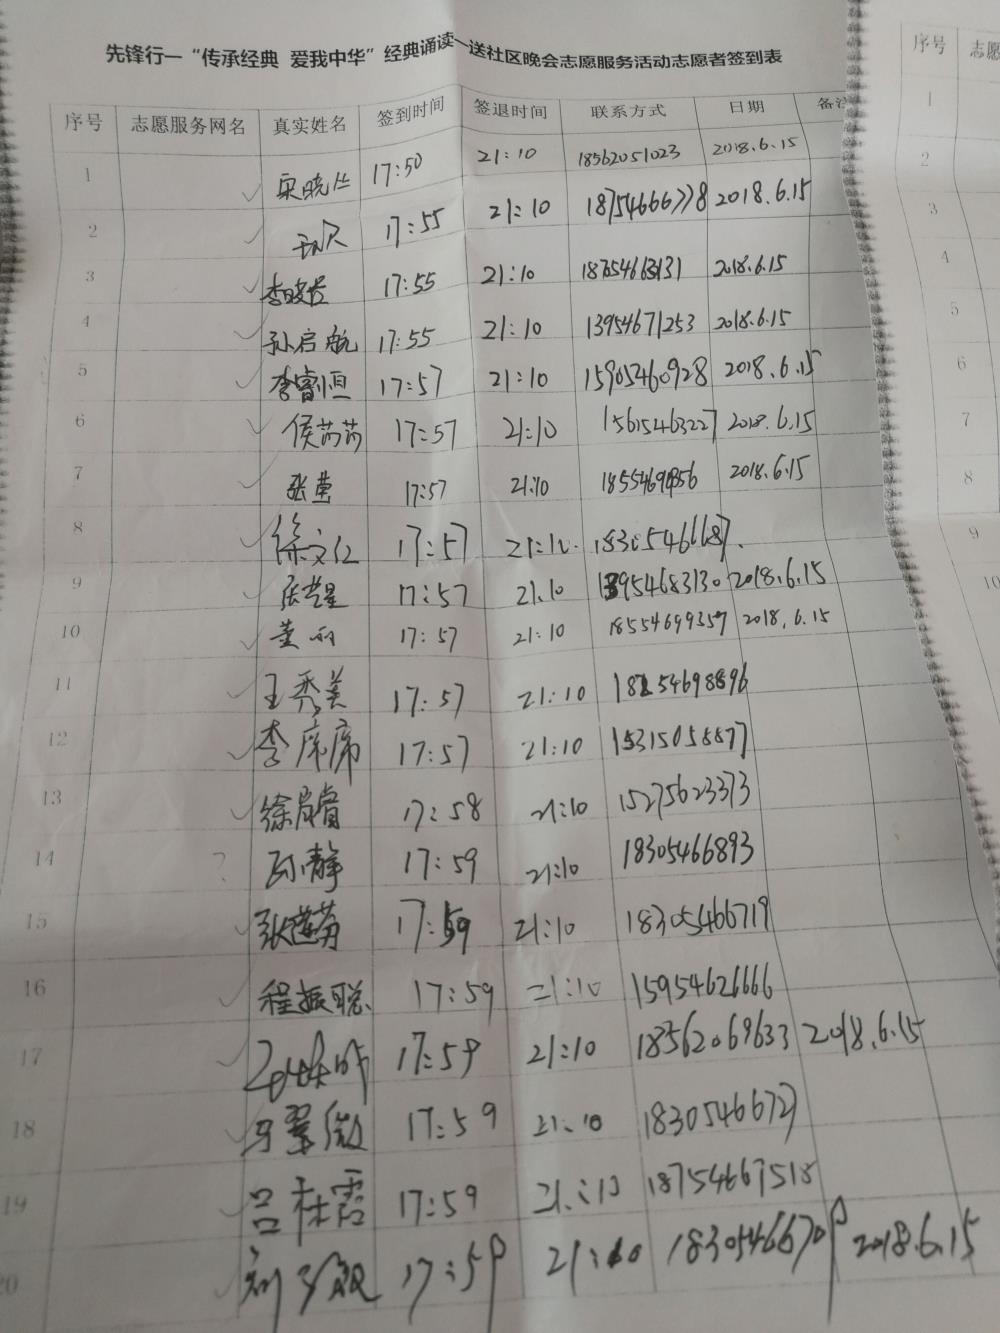 先锋行—“传承经典 爱我中华”经典诵读—送社区晚会志愿服务活动志愿者签到表
序号 志愿服务网名 真实姓名 签到时间 签退时间 联系方式 日期 备注
1 17:50 21:10 18562051023 2018.6.15
2 17:55 21:10 18754666778 2018.6.15
3 17:55 21:10 2018.6.15
4 孙启航 17:55 21:10 13954671253 2018.6.15
5 李睿恒 17:57 21:10 15905460928 2018.6.15
6 侯芮芮 17:57 21:10 15615463227 2018.6.15
7 张莹 17:57 21:10 2018.6.15
8 徐文仁 17:57 21:10 18305466687
9 17:57 21.10 13954683130 2018.6.15
10 董丽 17:57 21:10 18554699357 2018.6.15
11 王秀美 17:57 21:10
12 李席席 17:57 21:10 15315058877
13 17:58 21:10 15275623373
14 ? 孙静 17:59 21:10 18305466893
15 17:59 21:10 18305466719
16 程振聪 17:59 21:10 15954626666
17 17:59 21:10 18562069633 2018.6.15
18 17:59 21:10 18305466727
19 吕林霞 17:59 21:10 18754667518
20 17:59 21:10 18305466709 2018.6.15
序号 志愿
1
2
3
4
5
6
7
8
9
10